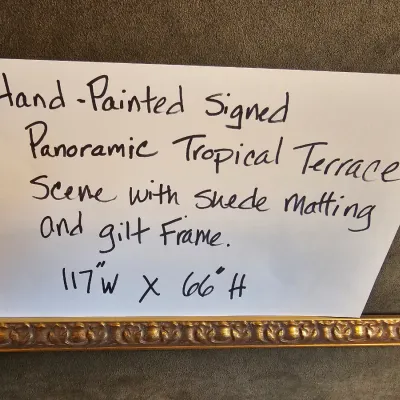 Hand-Painted Signed
Panoramic Tropical Terrace
Scene with suede matting
and gilt Frame.
117"W X 66"H